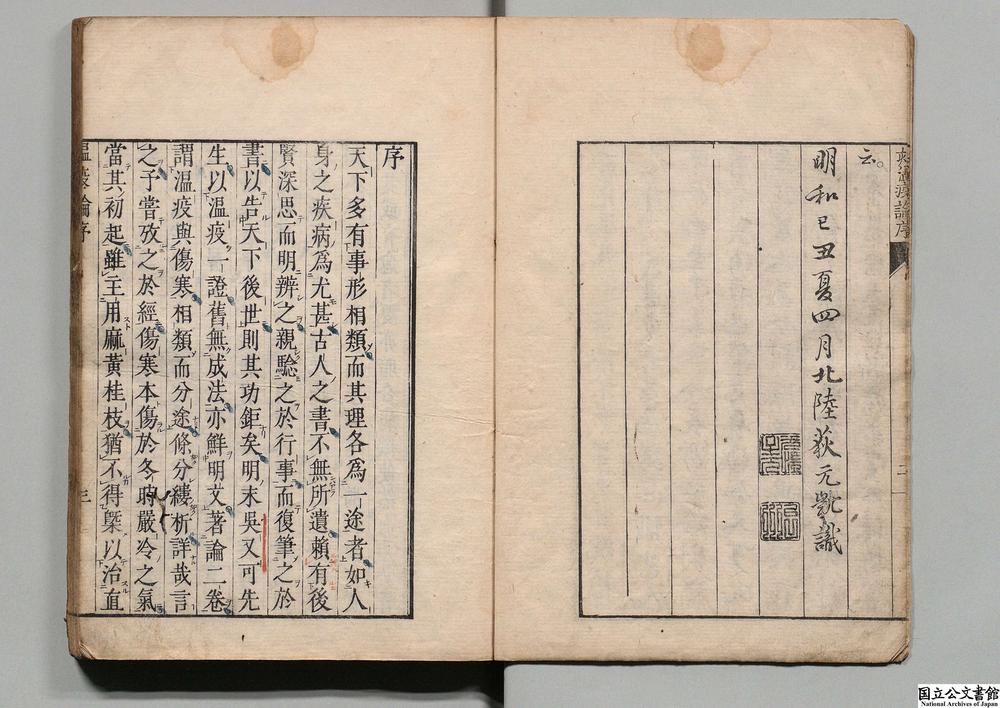 云
明和己丑夏四月北陸荻元凱識
序
天下多有事形相類而其理各爲一途者如人
身之疾病爲尤甚古人之書不無所遺賴有後
賢深思而明辨之親驗之於行事而復筆之於
書以告天下後世則其功鉅矣明末吳又可先
生以溫疫一證舊無成法亦鮮明文著論二卷
謂溫疫與傷寒相類而分途條分縷析詳哉言
之予嘗攷之於經傷寒本傷於冬時嚴冷之氣
當其初起雖主用麻黃桂枝猶不得槩以治直
三
国立公文書館
National Archives of Japan